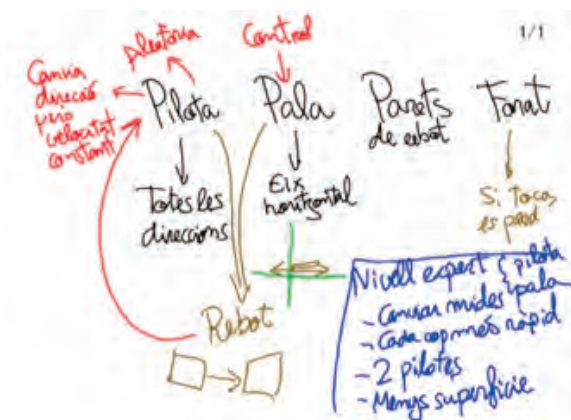 1/1
Aleatòria
Control
Canvia
direcció
però
velocitat
constant
Pilota
Pala
Parets
de rebot
Forat
Totes les
direccions
Eix
horitzontal
Si toca,
es perd
Rebot
Nivell expert
pilota
- Canviar mides pala
- Cada cop més ràpid
- 2 pilotes
- Menys superfície